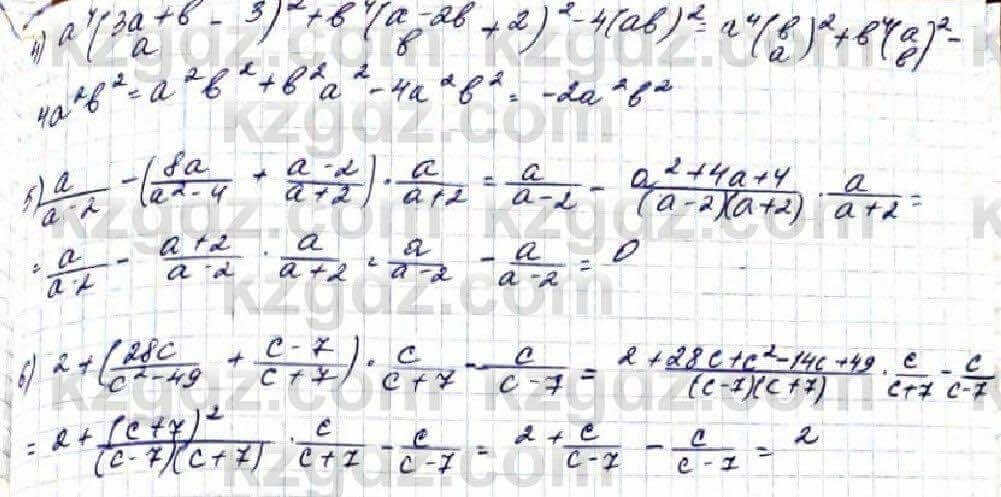 4) a⁴(3a+b/a - 3)² + b⁴(a-2b/b + 2)² - 4(ab)² = a⁴(b/a)² + b⁴(a/b)² -
4a²b² = a²b² + b²a² - 4a²b² = -2a²b²
5) a/a-2 - (8a/a²-4 + a-2/a+2) · a/a+2 = a/a-2 - a²+4a+4/(a-2)(a+2) · a/a+2 =
= a/a-2 - a+2/a-2 · a/a+2 = a/a-2 - a/a-2 = 0
6) 2 + (28c/c²-49 + c-7/c+7) · c/c+7 - c/c-7 = 2 + 28c+c²-14c+49/(c-7)(c+7) · c/c+7 - c/c-7
= 2 + (c+7)²/(c-7)(c+7) · c/c+7 - c/c-7 = 2 + c/c-7 - c/c-7 = 2
kzgdz.com
kzgdz.com
kzgdz.com
kzgdz.com
kzgdz.com